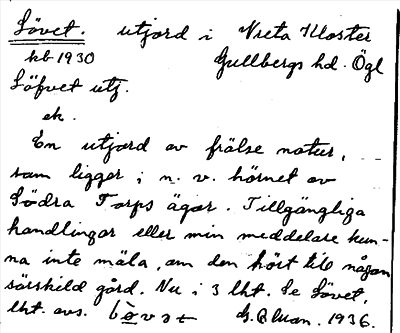 Lövet. utjord i Vreta Kloster
kb 1930 Gullbergs hd. Ögl
Löfvet utj.
ek.
En utjord av frälse natur,
som ligger i n. v. hörnet av
Södra Torps ägor. Tillgängliga
handlingar eller min meddelare kun-
na inte mäla, om den hört till någon
särskild gård. Nu i 3 lht. Se Lövet,
lht. avs. G. Bluan. 1936.